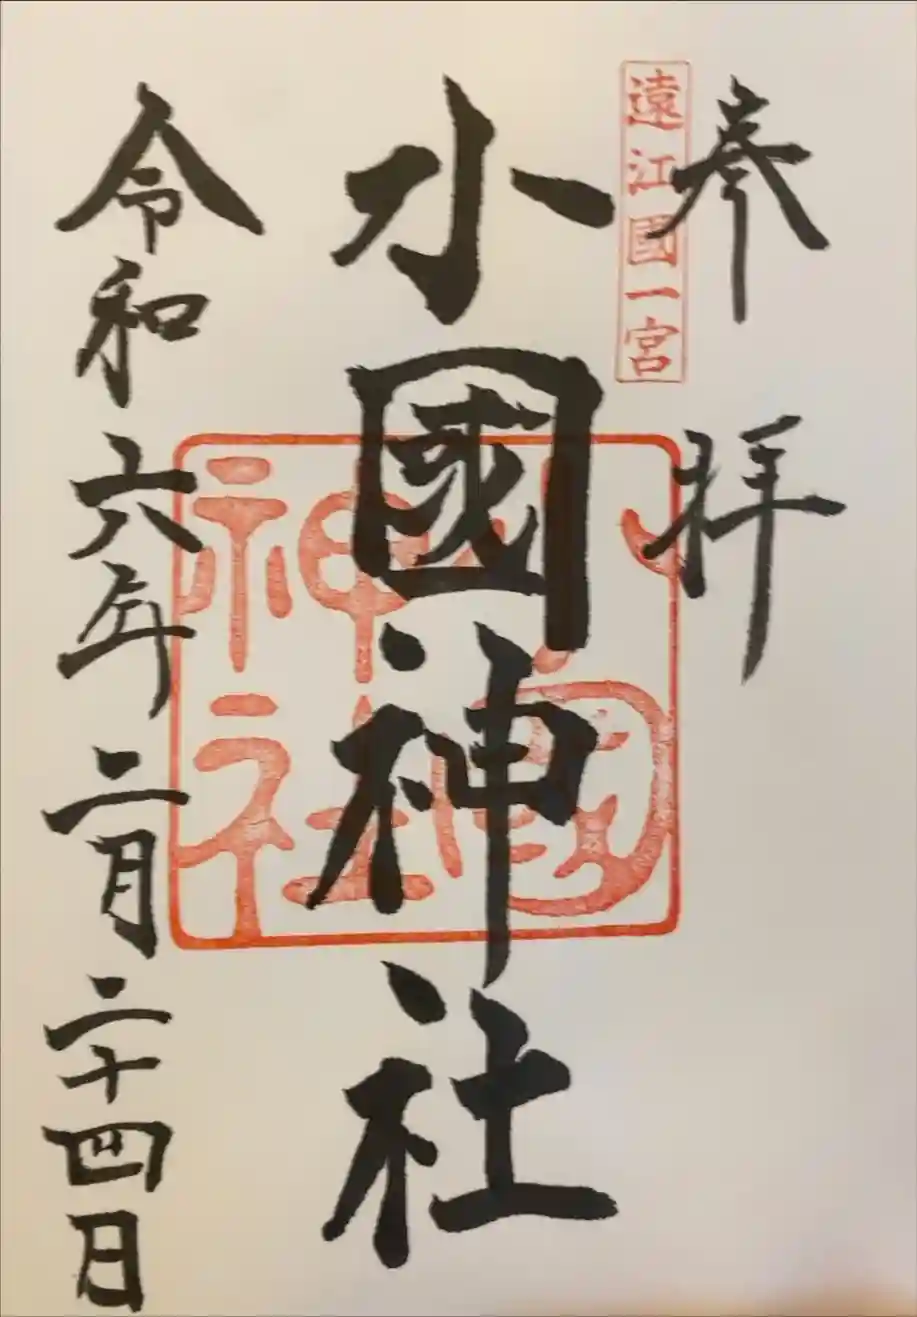 参拝
遠江國一宮
小國神社
小國神社
令和六年二月二十四日